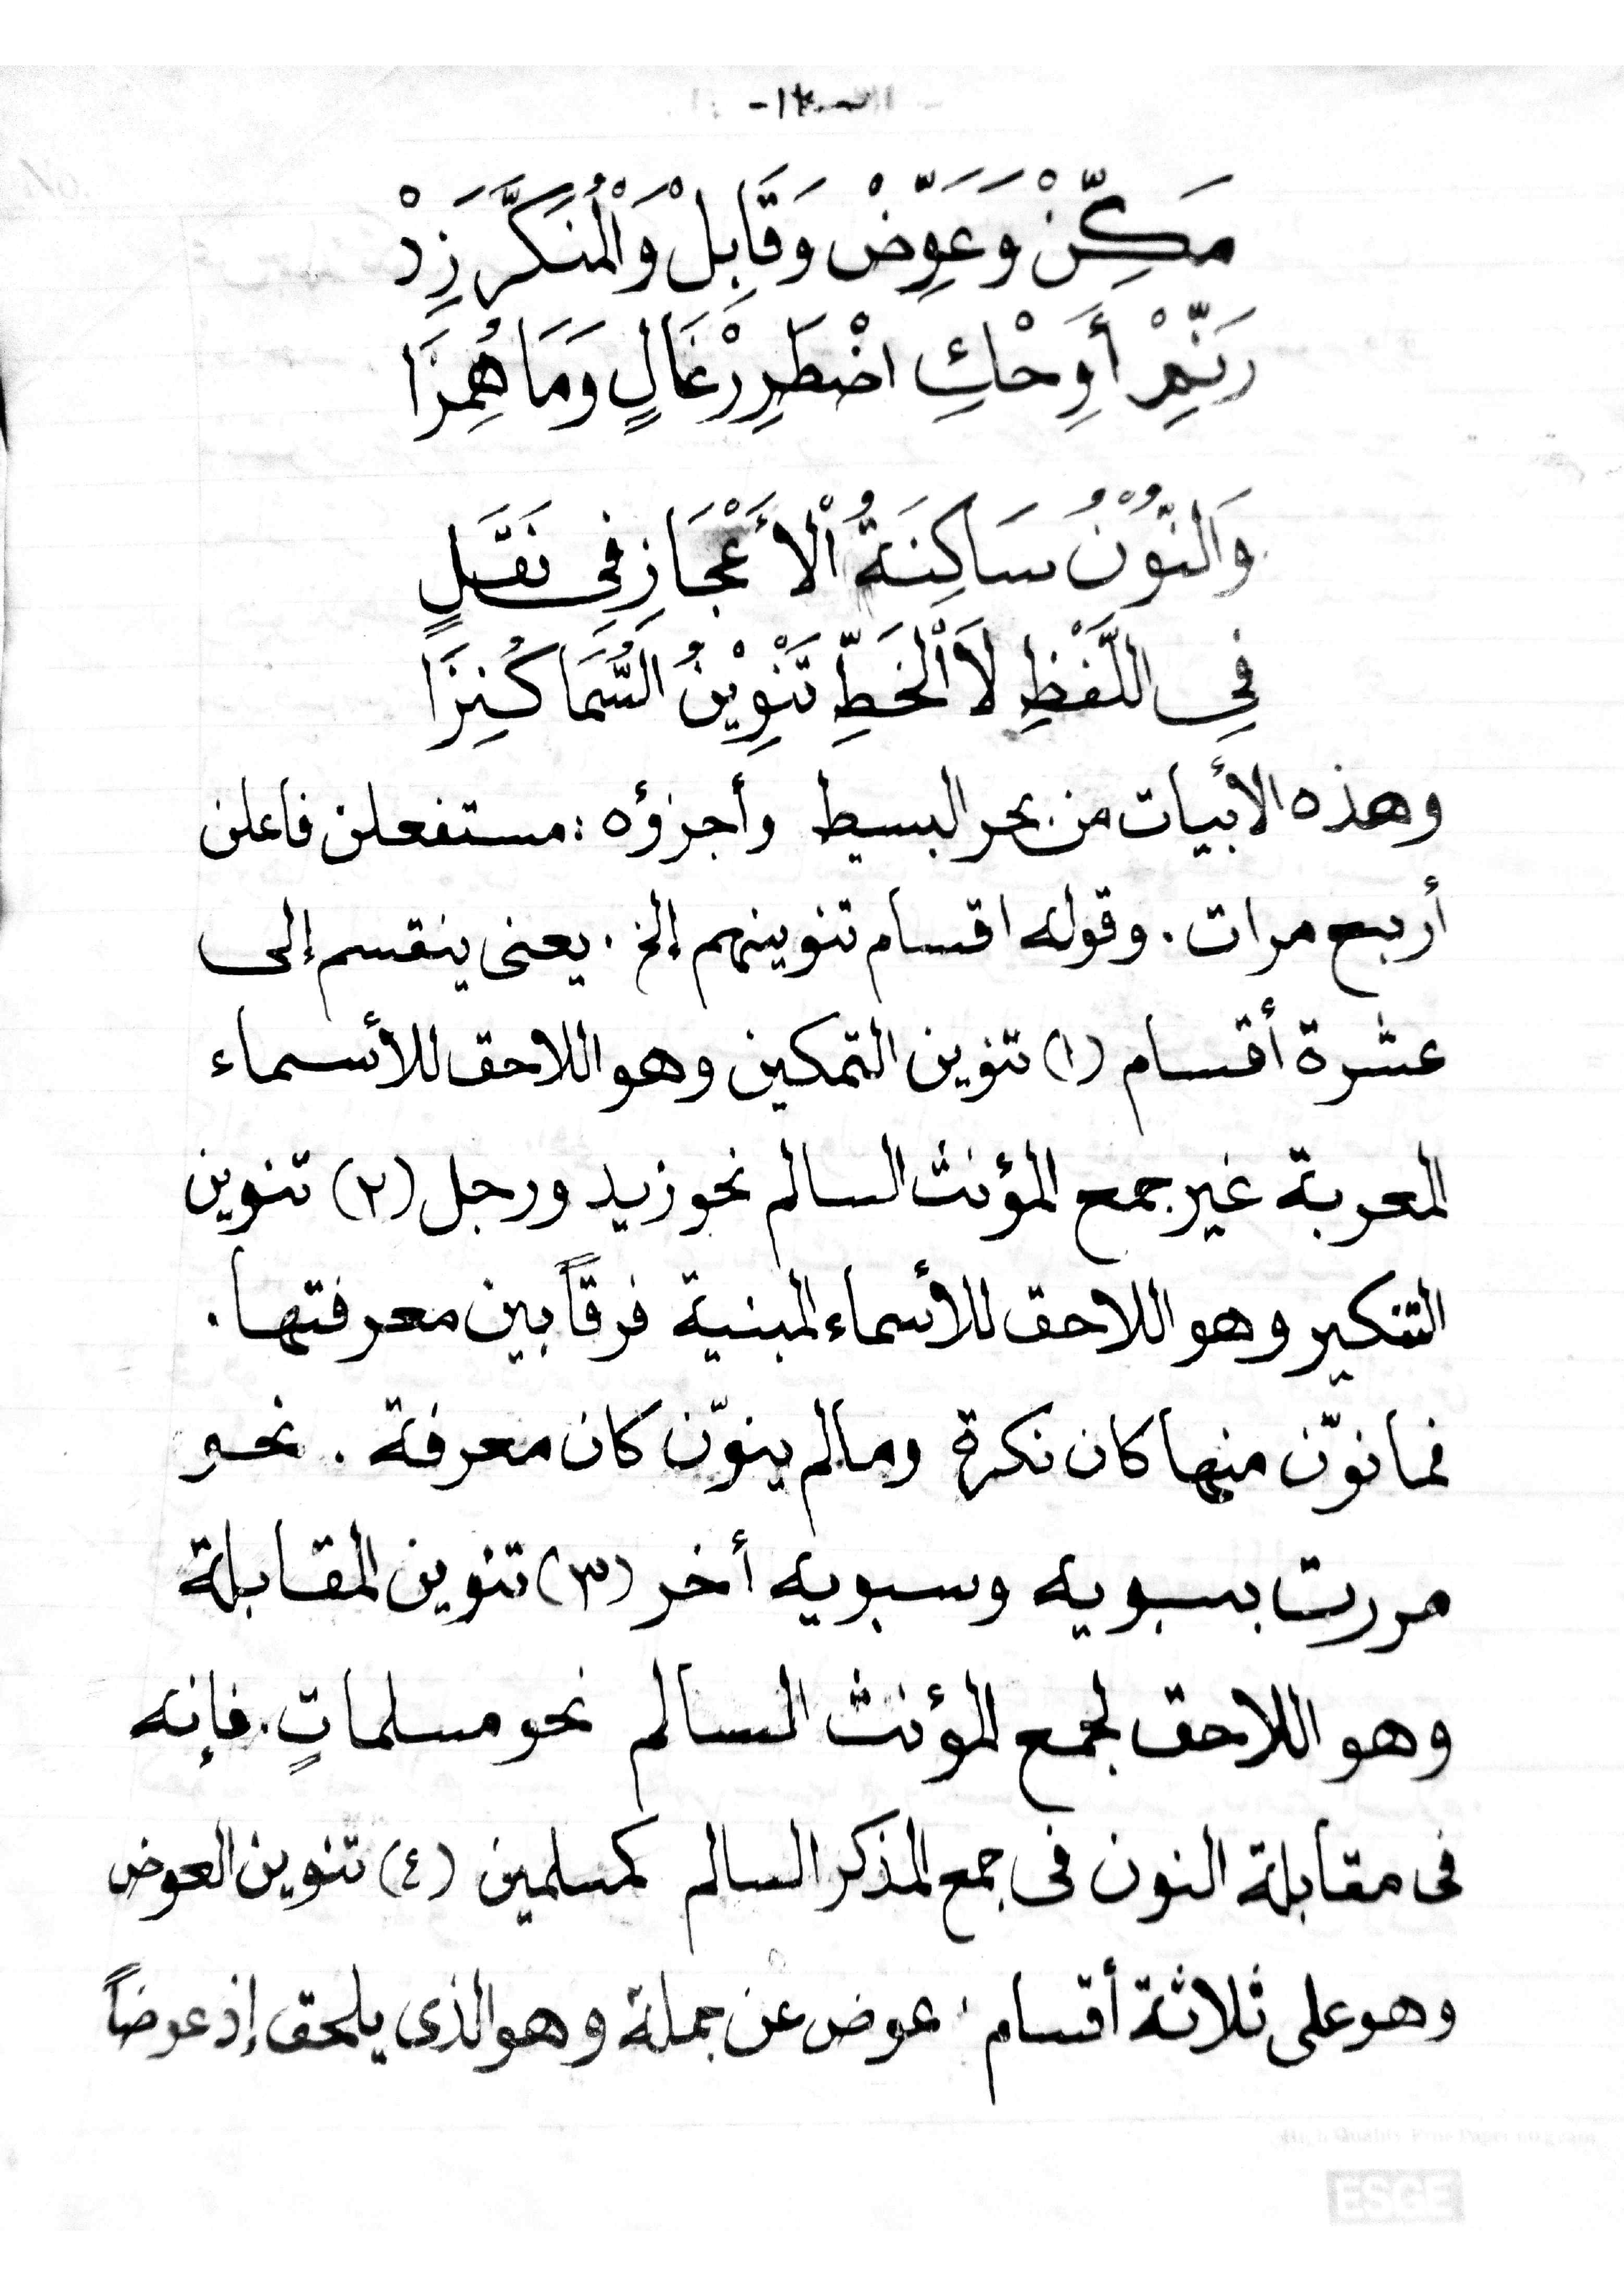 مَكِّنْ وَعَوِّضْ وَقَابِلْ وَالْمُنَكَّرَ زِدْ
رَنِّمْ أَوِحْكِ اضْطَرِرْ غَالٍ وَمَا هُمِزَا
وَالنُّوْنُ سَاكِنَةُ اْلأَعْجَازِ فِى نَقَلٍ
فِى اللَّفْظِ لاَ الْخَطِّ تَنْوِيْنُ السُّمَا كُنِزَا
وهذه الأبيات من بحر البسيط وأجزؤه : مستفعلن فاعلن
أربع مرات . وقوله اقسام تنوينهم إلخ . يعنى ينقسم إلى
عشرة أقسام (١) تنوين التمكين وهو اللاحق للأسماء
المعربة غير جمع المؤنث السالم نحو زيد ورجل (٢) تنوين
التنكير وهو اللاحق للأسماء المبنية فرقاً بين معرفتها .
فما نوّن منها كان نكرة ومالم ينوّن كان معرفة . نحو
مررت بسبويه وسبويه أخر (٣) تنوين المقابلة
وهو اللاحق لجمع المؤنث السالم نحو مسلماتٍ . فإنه
فى مقابلة النون فى جمع المذكر السالم كمسلمين (٤) تنوين العوض
وهو على ثلاثة أقسام : عوض عن جملة وهو الذى يلحق إذ عوضاً
ESGE